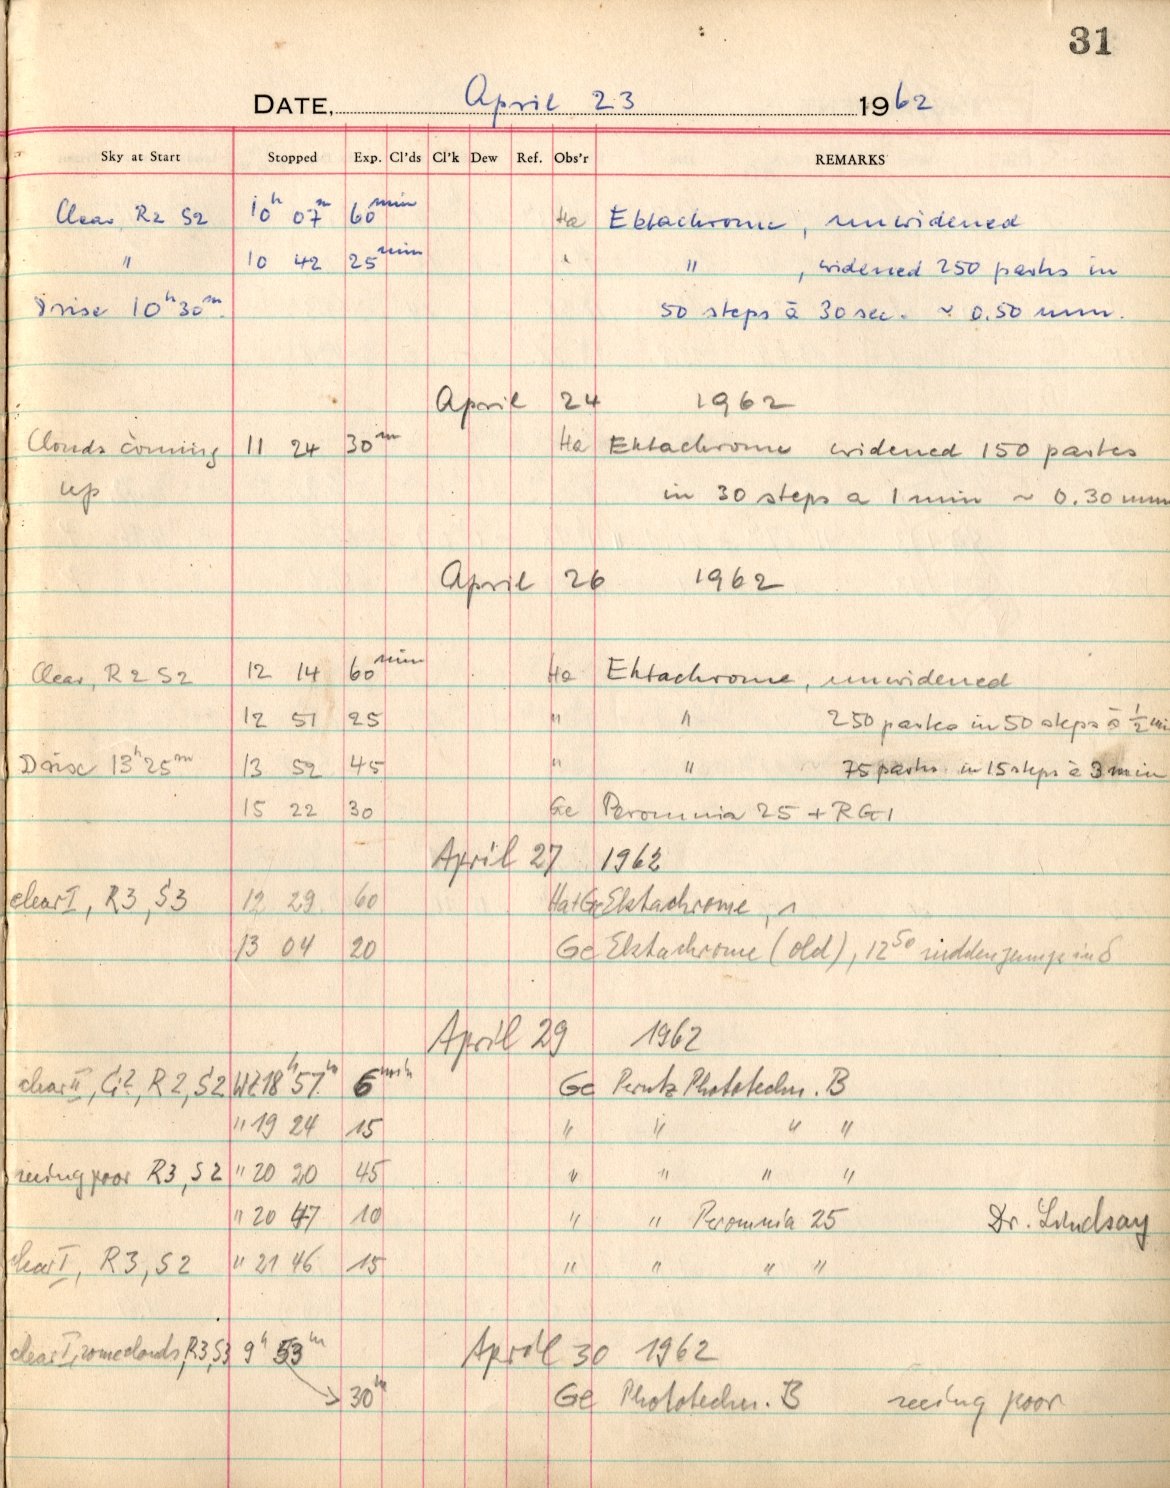 31
DATE, April 23 1962
Sky at Start Stopped Exp. Cl'ds Cl'k Dew Ref. Obs'r REMARKS
Clear, R2 S2 10h 07m 60min Ha Ektachrome, unwidened
" 10 42 25min " " , widened 250 parks in
10h30m. 50 steps à 30 sec. ~ 0.50 mm.
April 24 1962
Clouds coming 11 24 30m Ha Ektachrome widened 150 partes
up in 30 steps a 1 min ~ 0.30 mm
April 26 1962
Clear, R2 S2 12 14 60min Ha Ektachrome, unwidened
12 51 25 " " 250 partes in 50 steps à 1/2 mi
13h25m 13 52 45 " " 75 parts in 15 steps à 3 min
15 22 30 Ge Peromnia 25 + RG1
April 27 1962
clear I, R3, S3 12 29 60 Ha+Ge Ektachrome,
13 04 20 Ge Ektachrome (old), 12 50 sudden jump in δ
April 29 1962
clear II, G2, R2, S2 WZ 18h 57m 6min Ge Perutz Phototechn. B
" 19 24 15 " " " "
seeing poor R3, S2 " 20 20 45 " " " "
" 20 47 10 " " Peromnia 25 Dr. Lindsay
clear I, R3, S2 " 21 46 15 " " " "
clear I, some clouds, R3, S3 9h 53m April 30 1962
30m Ge Phototechn. B seeing poor